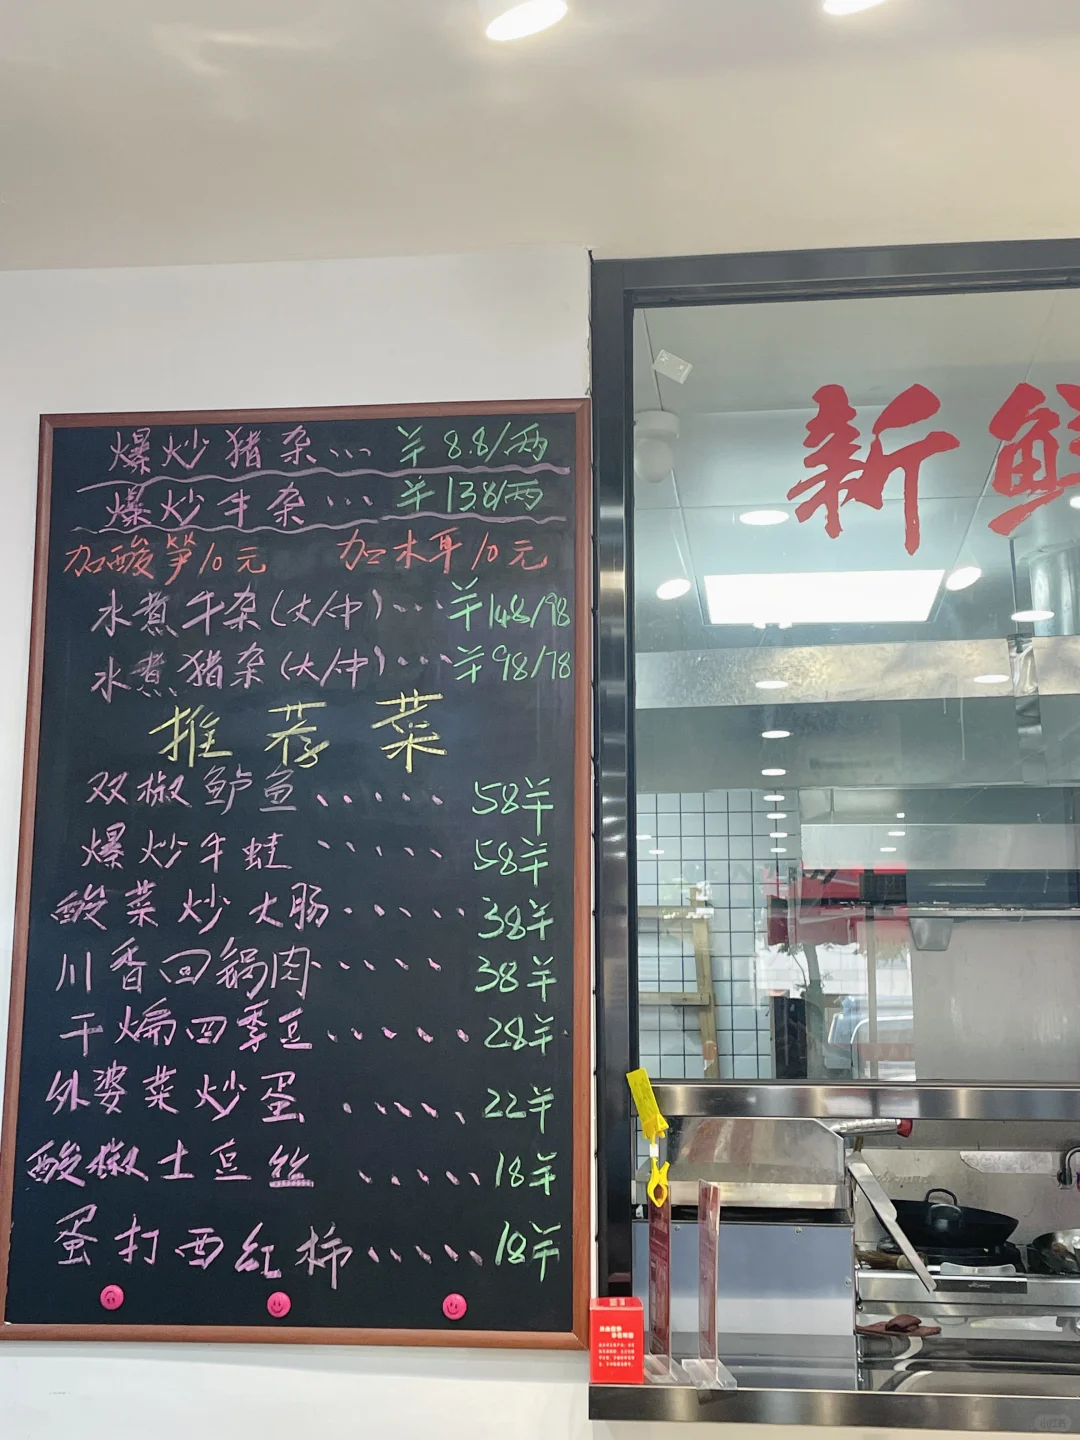 爆炒猪杂... 羊 8.8/两
爆炒牛杂... 羊 13.8/两
加酸笋10元 加木耳10元
水煮牛杂(大/中)...羊148/98
水煮猪杂(大/中)...羊98/78
推荐菜
双椒鲈鱼...... 58羊
爆炒牛蛙...... 58羊
酸菜炒大肠...... 38羊
川香回锅肉..... 38羊
干煸四季豆...... 28羊
外婆菜炒蛋..... 22羊
酸椒土豆丝..... 18羊
蛋打西红柿.....18羊
新鲜